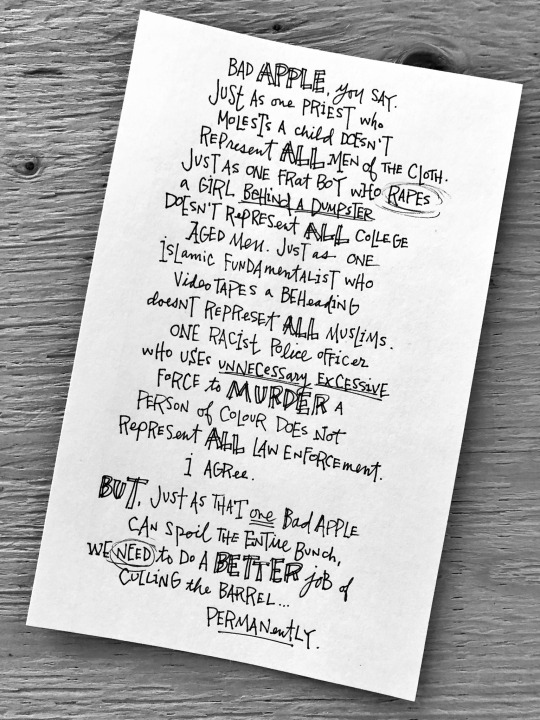 BAD APPLE, you SAY.
JUST AS one PRIEST who
MOLESTS A child DOESN'T
REPRESENT ALL MEN of THE CLOTH.
JUST AS ONE FRAT BOY WHO RAPES
a GIRL BEHIND A DUMPSTER
DOESN'T REPRESENT ALL COLLEGE
AGED MEN. JUST as ONE
ISLAMIC FUNDAMENTALIST WHO
VIDEOTAPES a BEHEADING
doesNT REPRESET ALL MUSLIMS.
ONE RACIST POLICE OFFICER
WHO USES UNNECESSARY EXCESSIVE
FORCE to MURDER A
PERSON of COLOUR DOES NOT
REPRESENT ALL LAW ENFORCEMENT.
i AGREE.
BUT, JUST AS THAT one Bad APPLE
CAN SPOIL THE ENTIRE BUNCH,
WE NEED to DO A BETTER JOB of
CULLING the BARREL...
PERMANENTLY.